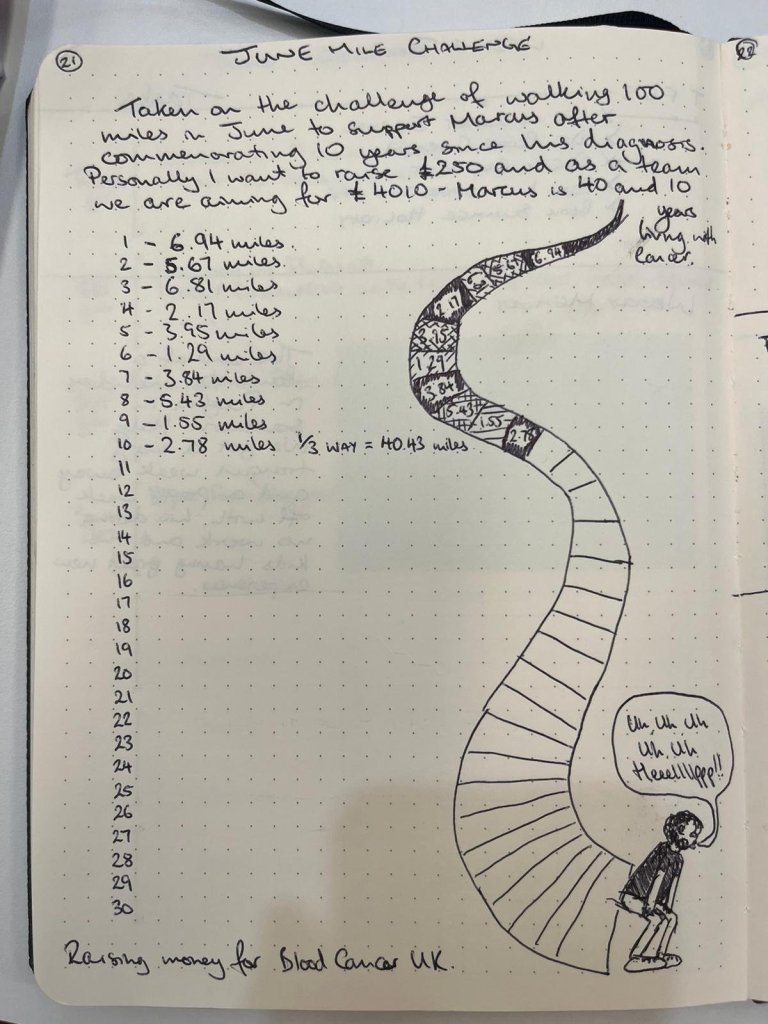 21
JUNE MILE CHALLENGE
22
Taken on the challenge of walking 100
miles in June to support Marcus after
commemorating 10 years since his diagnosis.
Personally I want to raise £250 and as a team
we are aiming for £4010 - Marcus is 40 and 10
years
living with
cancer.
1 - 6.94 miles
2 - 5.67 miles
3 - 6.81 miles
4 - 2.17 miles
5 - 3.95 miles
6 - 1.29 miles
7 - 3.84 miles
8 - 5.43 miles
9 - 1.55 miles
10 - 2.78 miles 1/3 WAY = 40.43 miles
11
12
13
14
15
16
17
18
19
20
21
22
23
24
25
26
27
28
29
30
6.94
5.67
2.17
3.95
1.29
3.84
5.43
1.55
2.78
Uh, Uh Uh
Uh, Uh
Heeelllllppp!!
Raising money for Blood Cancer UK.